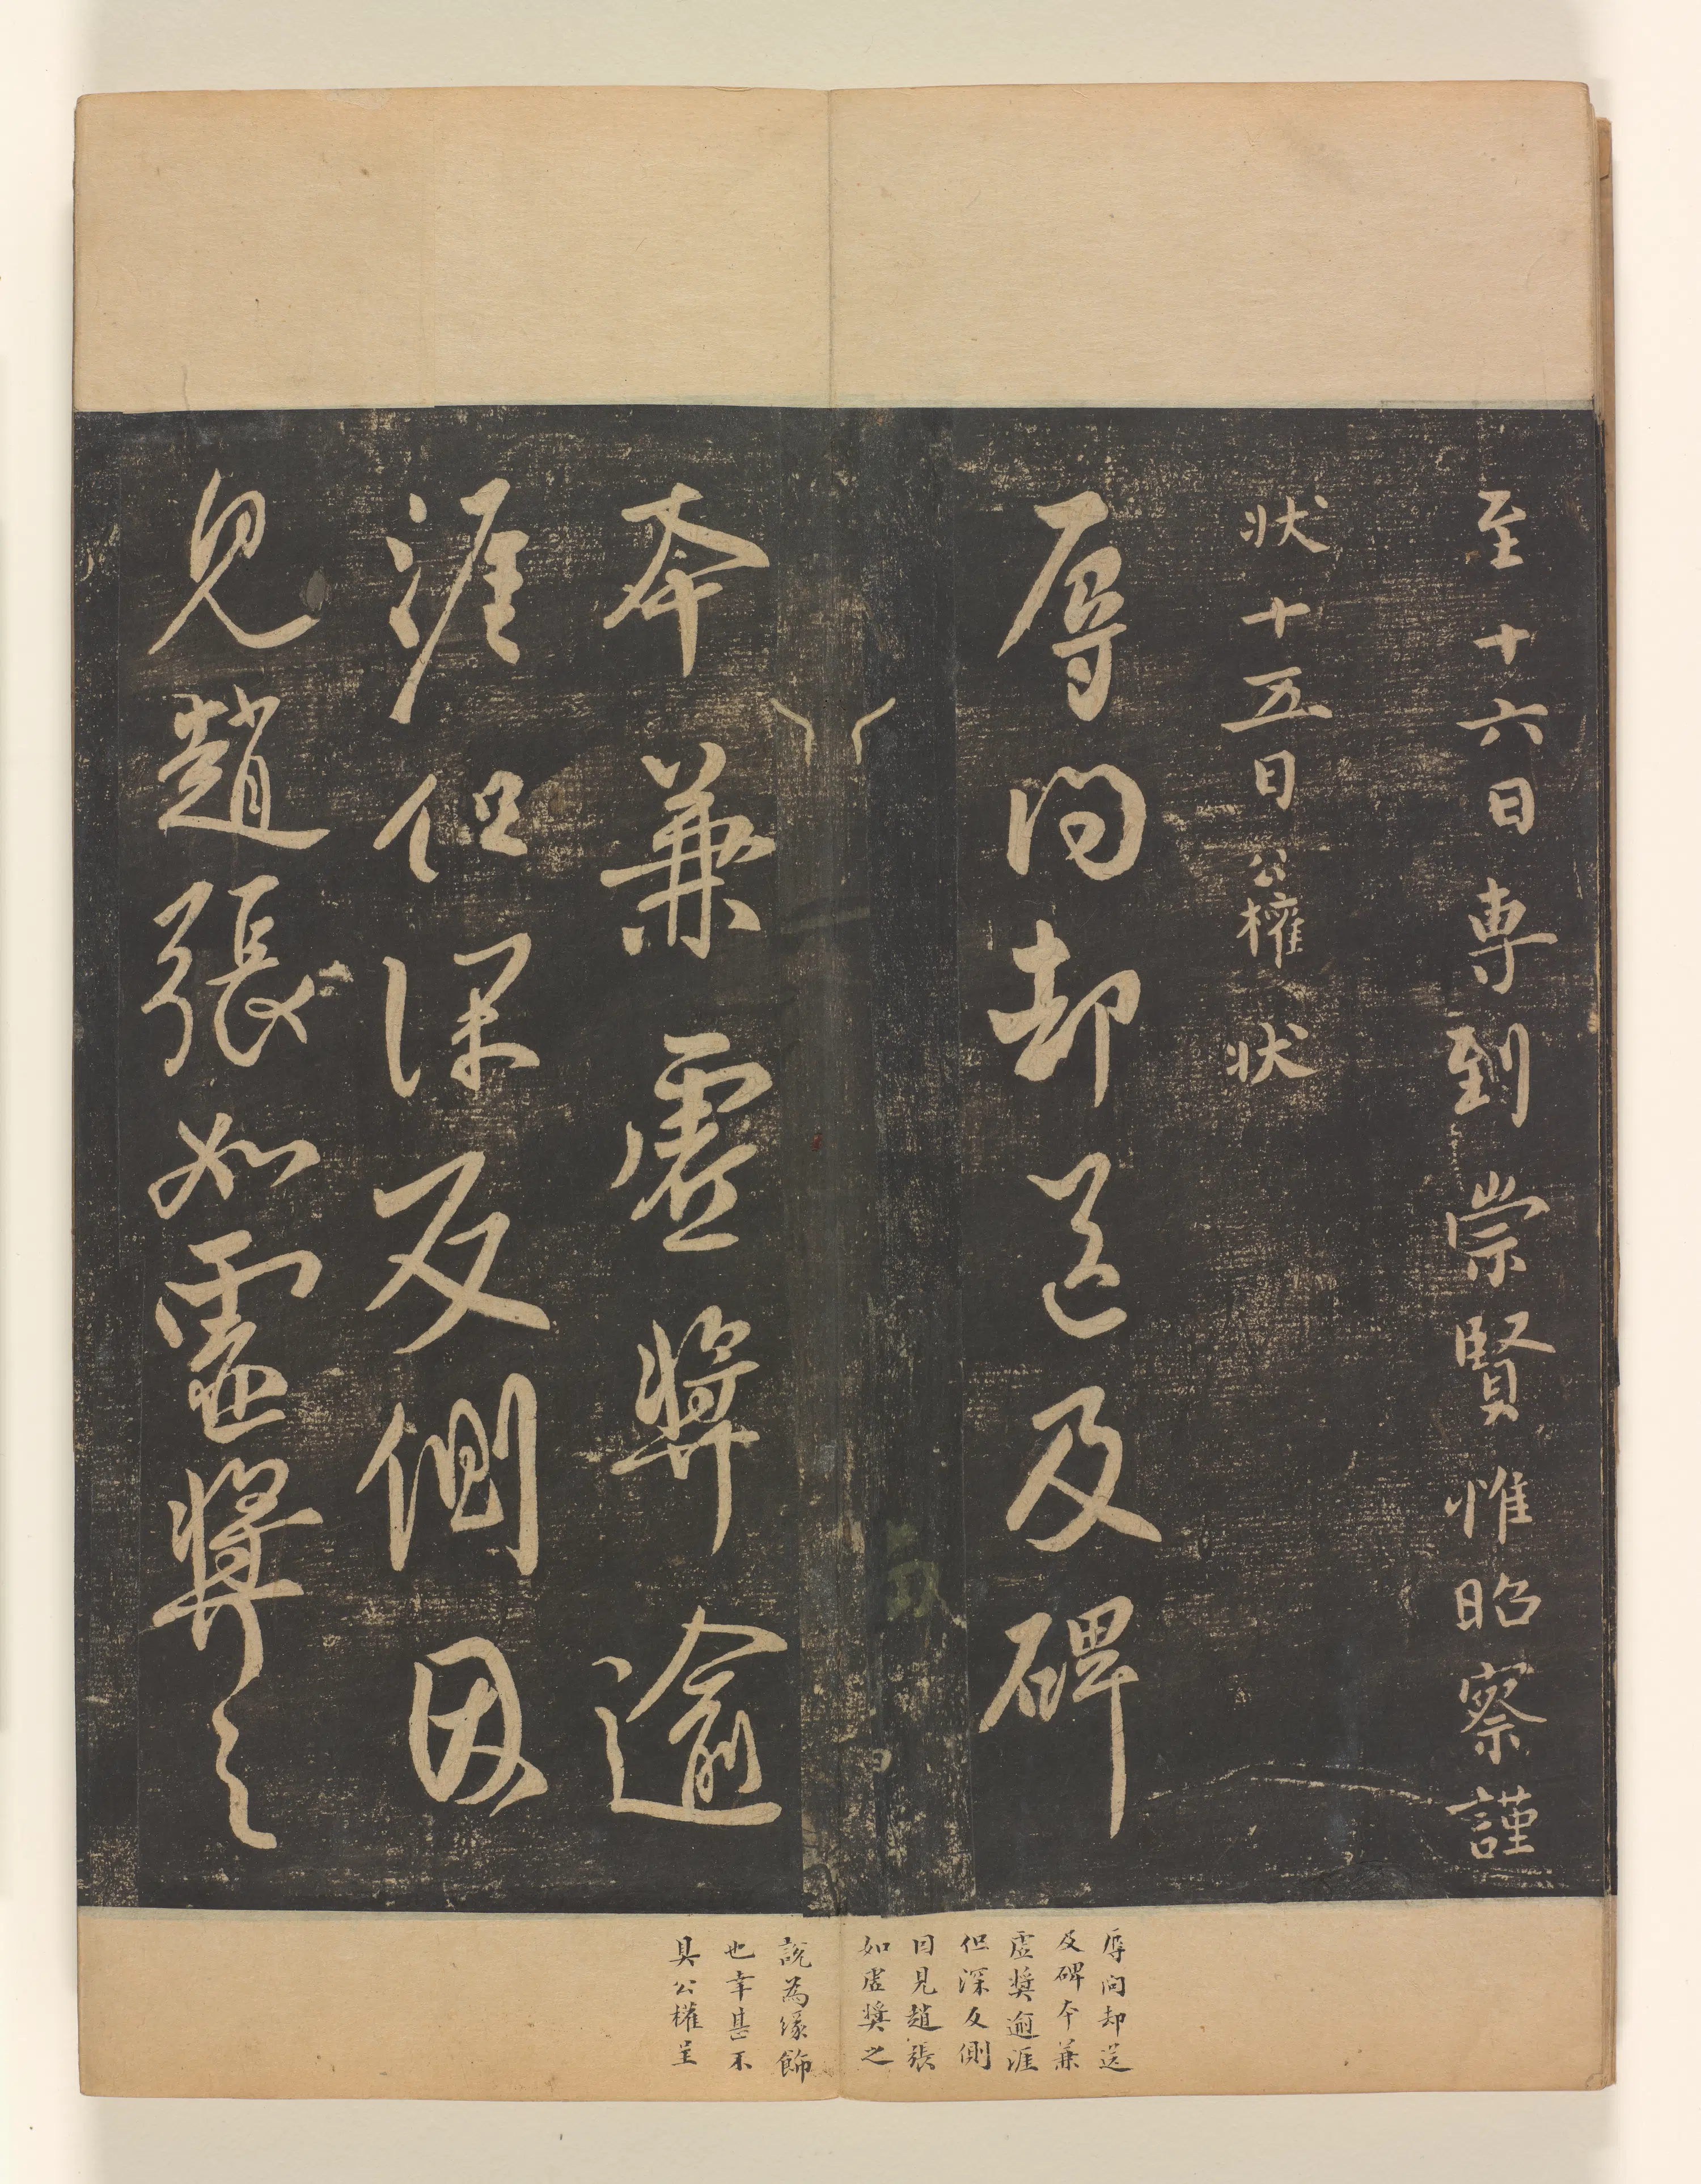 至十六日専到崇賢惟昭察謹
状十五日公權状
辱問却送及碑
本兼虛奬逾
涯但深反側因
見趙張如虛奬之
辱问却送
及碑本兼
虛奬逾涯
但深反側
因見趙張
如虛奬之
說為緣飾
也幸甚不
具公權呈